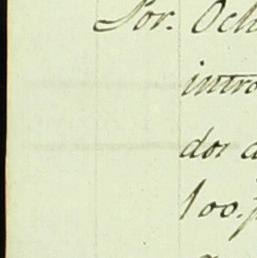 Por. Och
intro
dos a
100. p